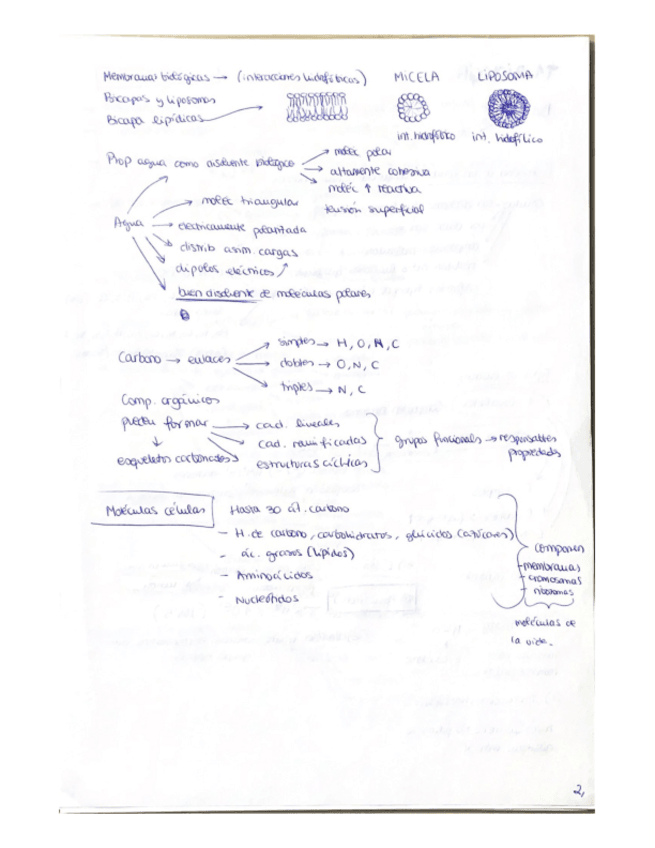 Membranas biológicas → (interacciones hidrofóbicas) MICELA LIPOSOMA
Bicapas y liposomas
Bicapa lipídicas
int. hidrofílico int. hidrofílico
Prop agua como disolvente biológico → moléc polar
→ altamente cohesiva
→ moléc ↑ reactiva
tensión superficial
Agua → moléc triangular
→ eléctricamente polarizada
→ distrib asim. cargas
→ dipolos eléctricos
buen disolvente de moléculas polares
Carbono → enlaces → simples → H, O, N, C
→ dobles → O, N, C
→ triples → N, C
Comp. orgánicos
pueden formar → cad. lineales
→ cad. ramificadas
→ estructuras cíclicas
esqueletos carbonados
grupos funcionales → responsables
propiedades
Moléculas células Hasta 30 át. carbono
- H. de carbono, carbohidratos, glúcidos (azúcares)
- ác. grasos (lípidos)
- Aminoácidos
- Nucleótidos
componen
- membranas
- cromosomas
- ribosomas
moléculas de
la vida.
2,